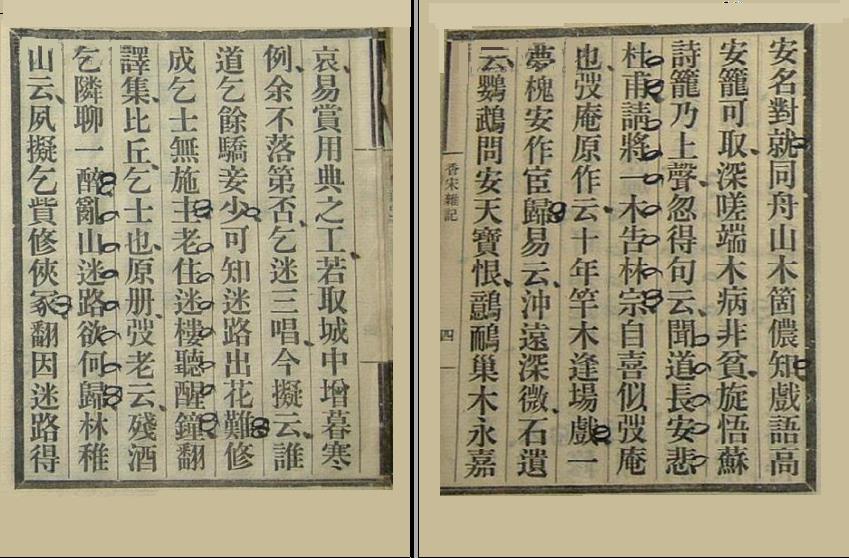 安名對就同舟山木箇儂知戲語高
安籠可取深嗟端木病非貧旋悟蘇
詩籠乃上聲忽得句云聞道長安悲
杜甫請將一木吿林宗自喜似弢庵
也弢庵原作云十年竿木逢場戲一
夢槐安作宦歸易云沖遠深微石遺
云鸚鵡問安天寶恨鸓鴯巢木永嘉
香宋雜記
四
哀易賞用典之工若取城中增暮寒
例余不落第否乞迷三唱今擬云誰
道乞餘驕妾少可知迷路出花難修
成乞士無施主老住迷樓聽醒鐘翻
譯集比丘乞士也原册弢老云殘酒
乞隣聊一醉亂山迷路欲何歸林稚
山云夙擬乞貲修俠冢翻因迷路得